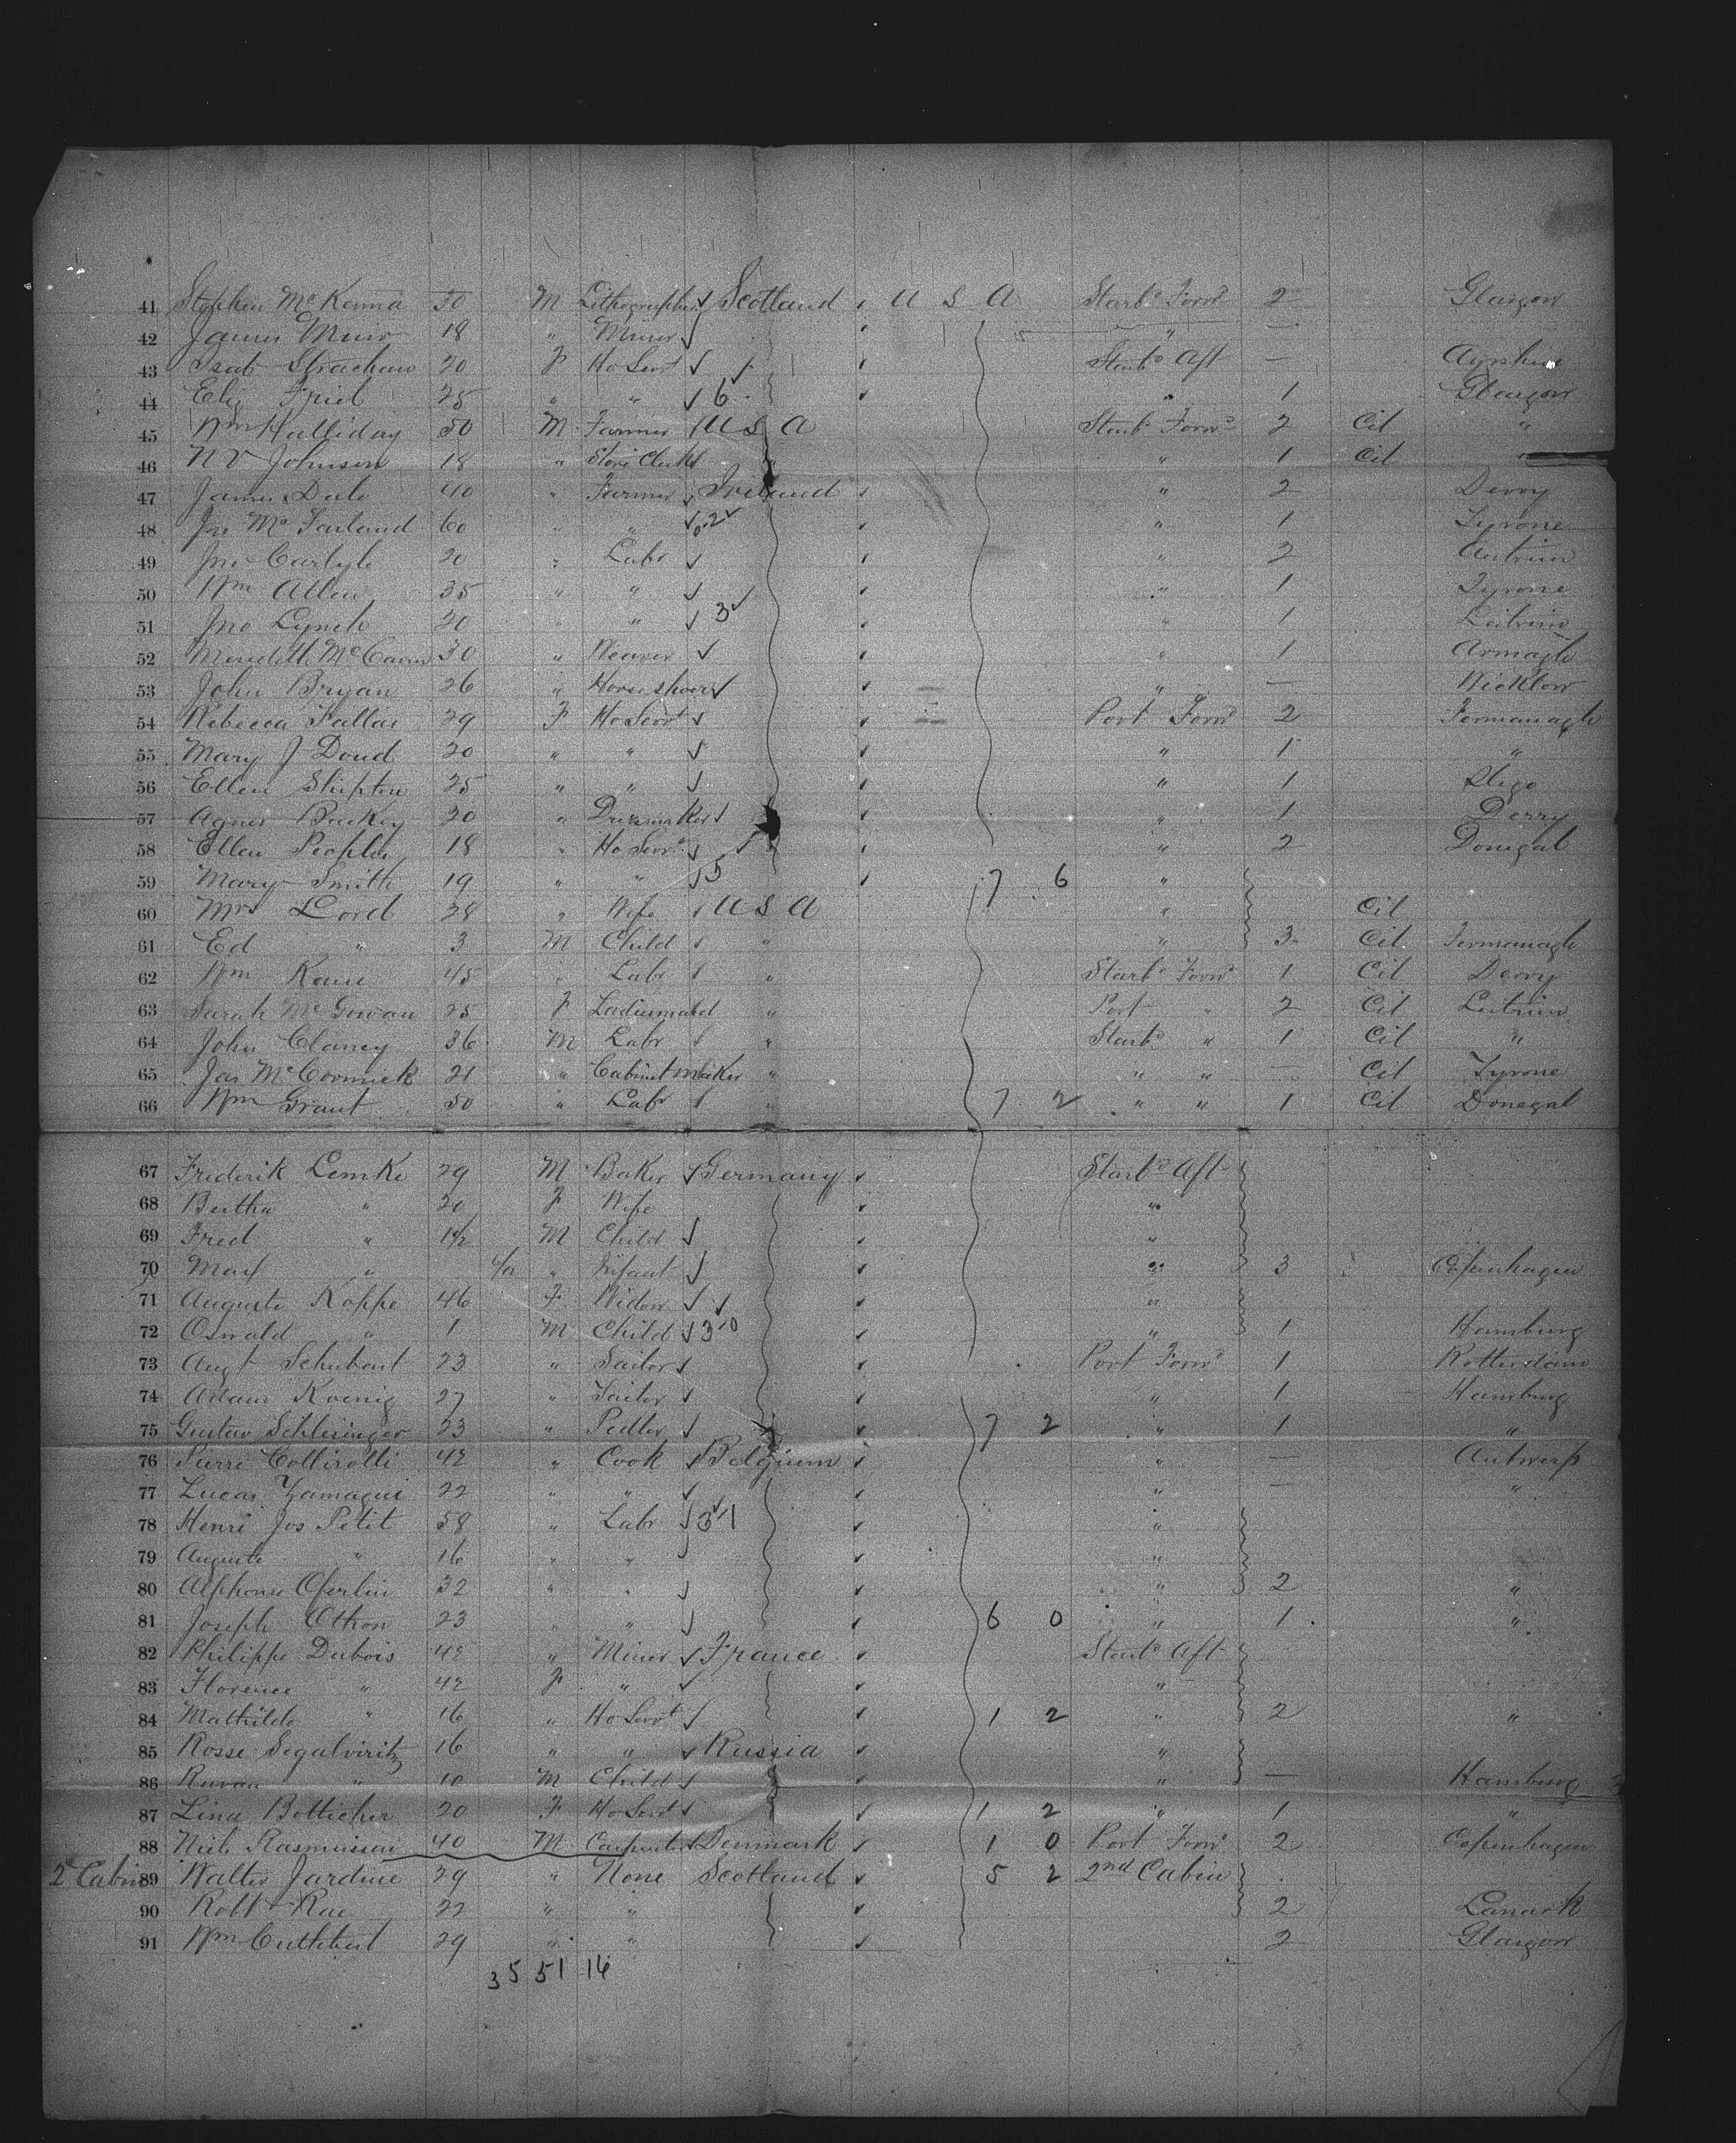 41 Stephen McKenna 30 M Lithographer Scotland U S A Starbd Forwd 2 Glasgow
42 James Muir 18 " Miner " —
43 Isab Strachan 20 F Ho Servt Starbd Aft — Ayrshire
44 Eliz Friel 25 " " 6 " 1 Glasgow
45 Wm Halliday 50 M Farmer U S A Starbd Forwd 2 Cit "
46 N V Johnson 18 " Store Clerk " " 1 Cit "
47 James Dale 40 " Farmer Ireland " 2 Derry
48 Jno McFarland 60 " " 2 " 1 Tyrone
49 Jno Carlyle 20 " Labr " 2 Antrim
50 Wm Allen 35 " " " 1 Tyrone
51 Jno Lynch 20 " " 3 " 1 Leitrim
52 Meredith McCann 30 " Weaver " 1 Armagh
53 John Bryan 26 " Horseshoer " — Wicklow
54 Rebecca Fallas 29 F Ho Servt Port Forwd 2 Fermanagh
55 Mary J Doud 20 " " " 1 "
56 Ellen Shipton 25 " " " 1 Sligo
57 Agnes 20 " Dressmaker " 1 Derry
58 Ellen Peoples 18 " Ho Servt " 2 Donegal
59 Mary Smith 19 " " 5 7 6 "
60 Mrs Lord 28 " Wife U S A " Cit
61 Ed " 3 M Child " " 3 Cit Fermanagh
62 Wm Kane 45 " Labr " Starbd Forwd 1 Cit Derry
63 Sarah McGowan 25 F Ladiesmaid " Port " 2 Cit Leitrim
64 John Clancy 36 M Labr " Starbd " 1 Cit "
65 Jas McCormick 21 " Cabinet maker " " " — Cit Tyrone
66 Wm Grant 50 " Labr " 7 2 " " 1 Cit Donegal
67 Frederik Lemke 29 M Baker Germany Starbd Aft
68 Bertha " 20 F Wife "
69 Fred " 1½ M Child "
70 Max " " Infant " 3 Copenhagen
71 Auguste Koppe 46 F Widow "
72 Oswald " 1 M Child 3 10 " 1 Hamburg
73 Augt Schubart 23 " Sailor Port Forwd 1 Rotterdam
74 Adam Koenig 27 " Tailor " 1 Hamburg
75 Gustav Schlesinger 23 " Pedler 7 2 " 1 "
76 Pierre Collirolli 42 " Cook Belgium " — Antwerp
77 Lucas Zamagni 22 " " " — "
78 Henri Jos Petit 58 " Labr 31 "
79 Auguste " 16 " " "
80 Alphonse Oferlin 32 " " " 2 "
81 Joseph Othon 23 " " 6 0 " 1 "
82 Philippe Dubois 42 " Miner France Starbd Aft
83 Florence " 42 F " "
84 Mathilde " 16 " Ho Servt 1 2 " 2 "
85 Rosse Segalviritz 16 " " Russia "
86 " 10 M Child " — Hamburg
87 Lina Botticher 20 F Ho Servt 1 2 " 1 "
88 Niels Rasmussen 40 M Carpenter Denmark 1 0 Port Forwd 2 Copenhagen
2d Cabin 89 Walter Jardine 29 " None Scotland 5 2 2nd Cabin
90 Robt Rae 22 " " 2 Lanark
91 Wm Cuthbert 29 " " 2 Glasgow
35 51 16